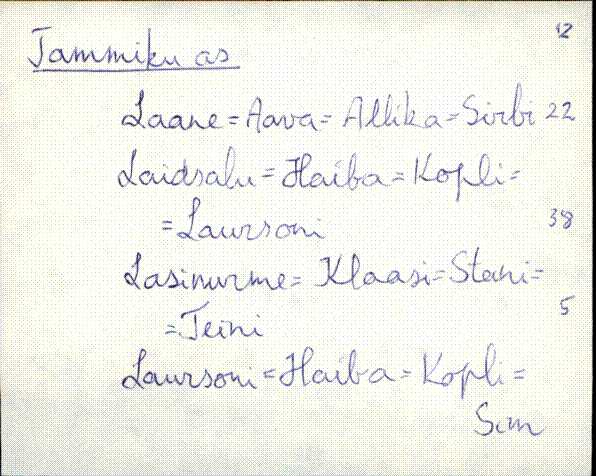 12
Tammiku as
Laane = Aava = Allika = Sirbi 22
Laidsalu = Haiba = Kopli =
= Laursoni 38
Lasinurme = Klaasi = Stani =
= Teini 5
Laursoni = Haiba = Kopli =
Sim